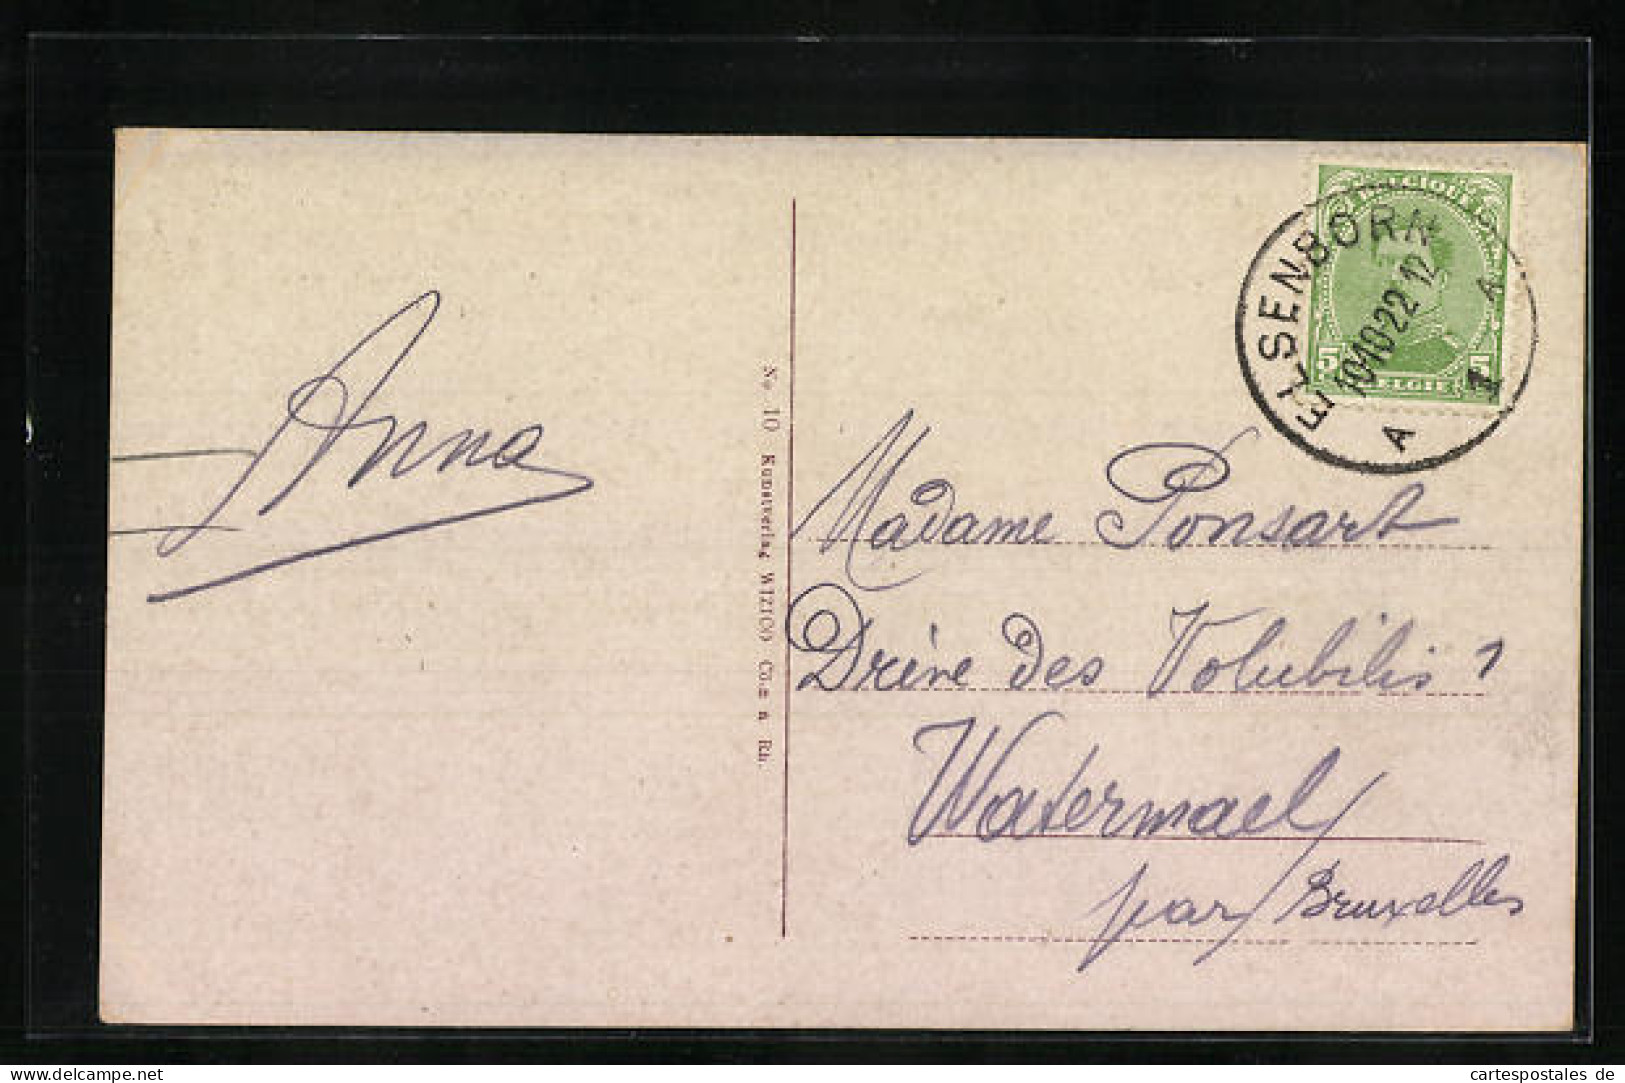 Anna
No 10 Kunstverlag
Rh.
BELGIQUE
5
BELGIË
ELSENBORN
10-10-22 12
A A
1
Madame Ponsart
Drève des Volubilis 1
Watermael
par Bruxelles
www.cartespostales.de
cartespostales de